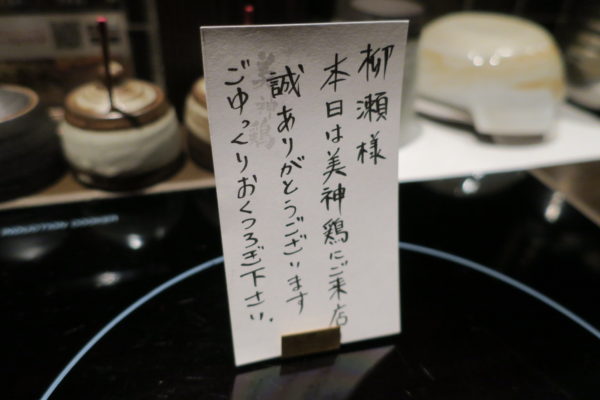 柳瀬様
本日は美神鶏にご来店
誠ありがとうございます
ごゆっくりおくつろぎ下さい。
美神鶏
INDUCTION COOKER